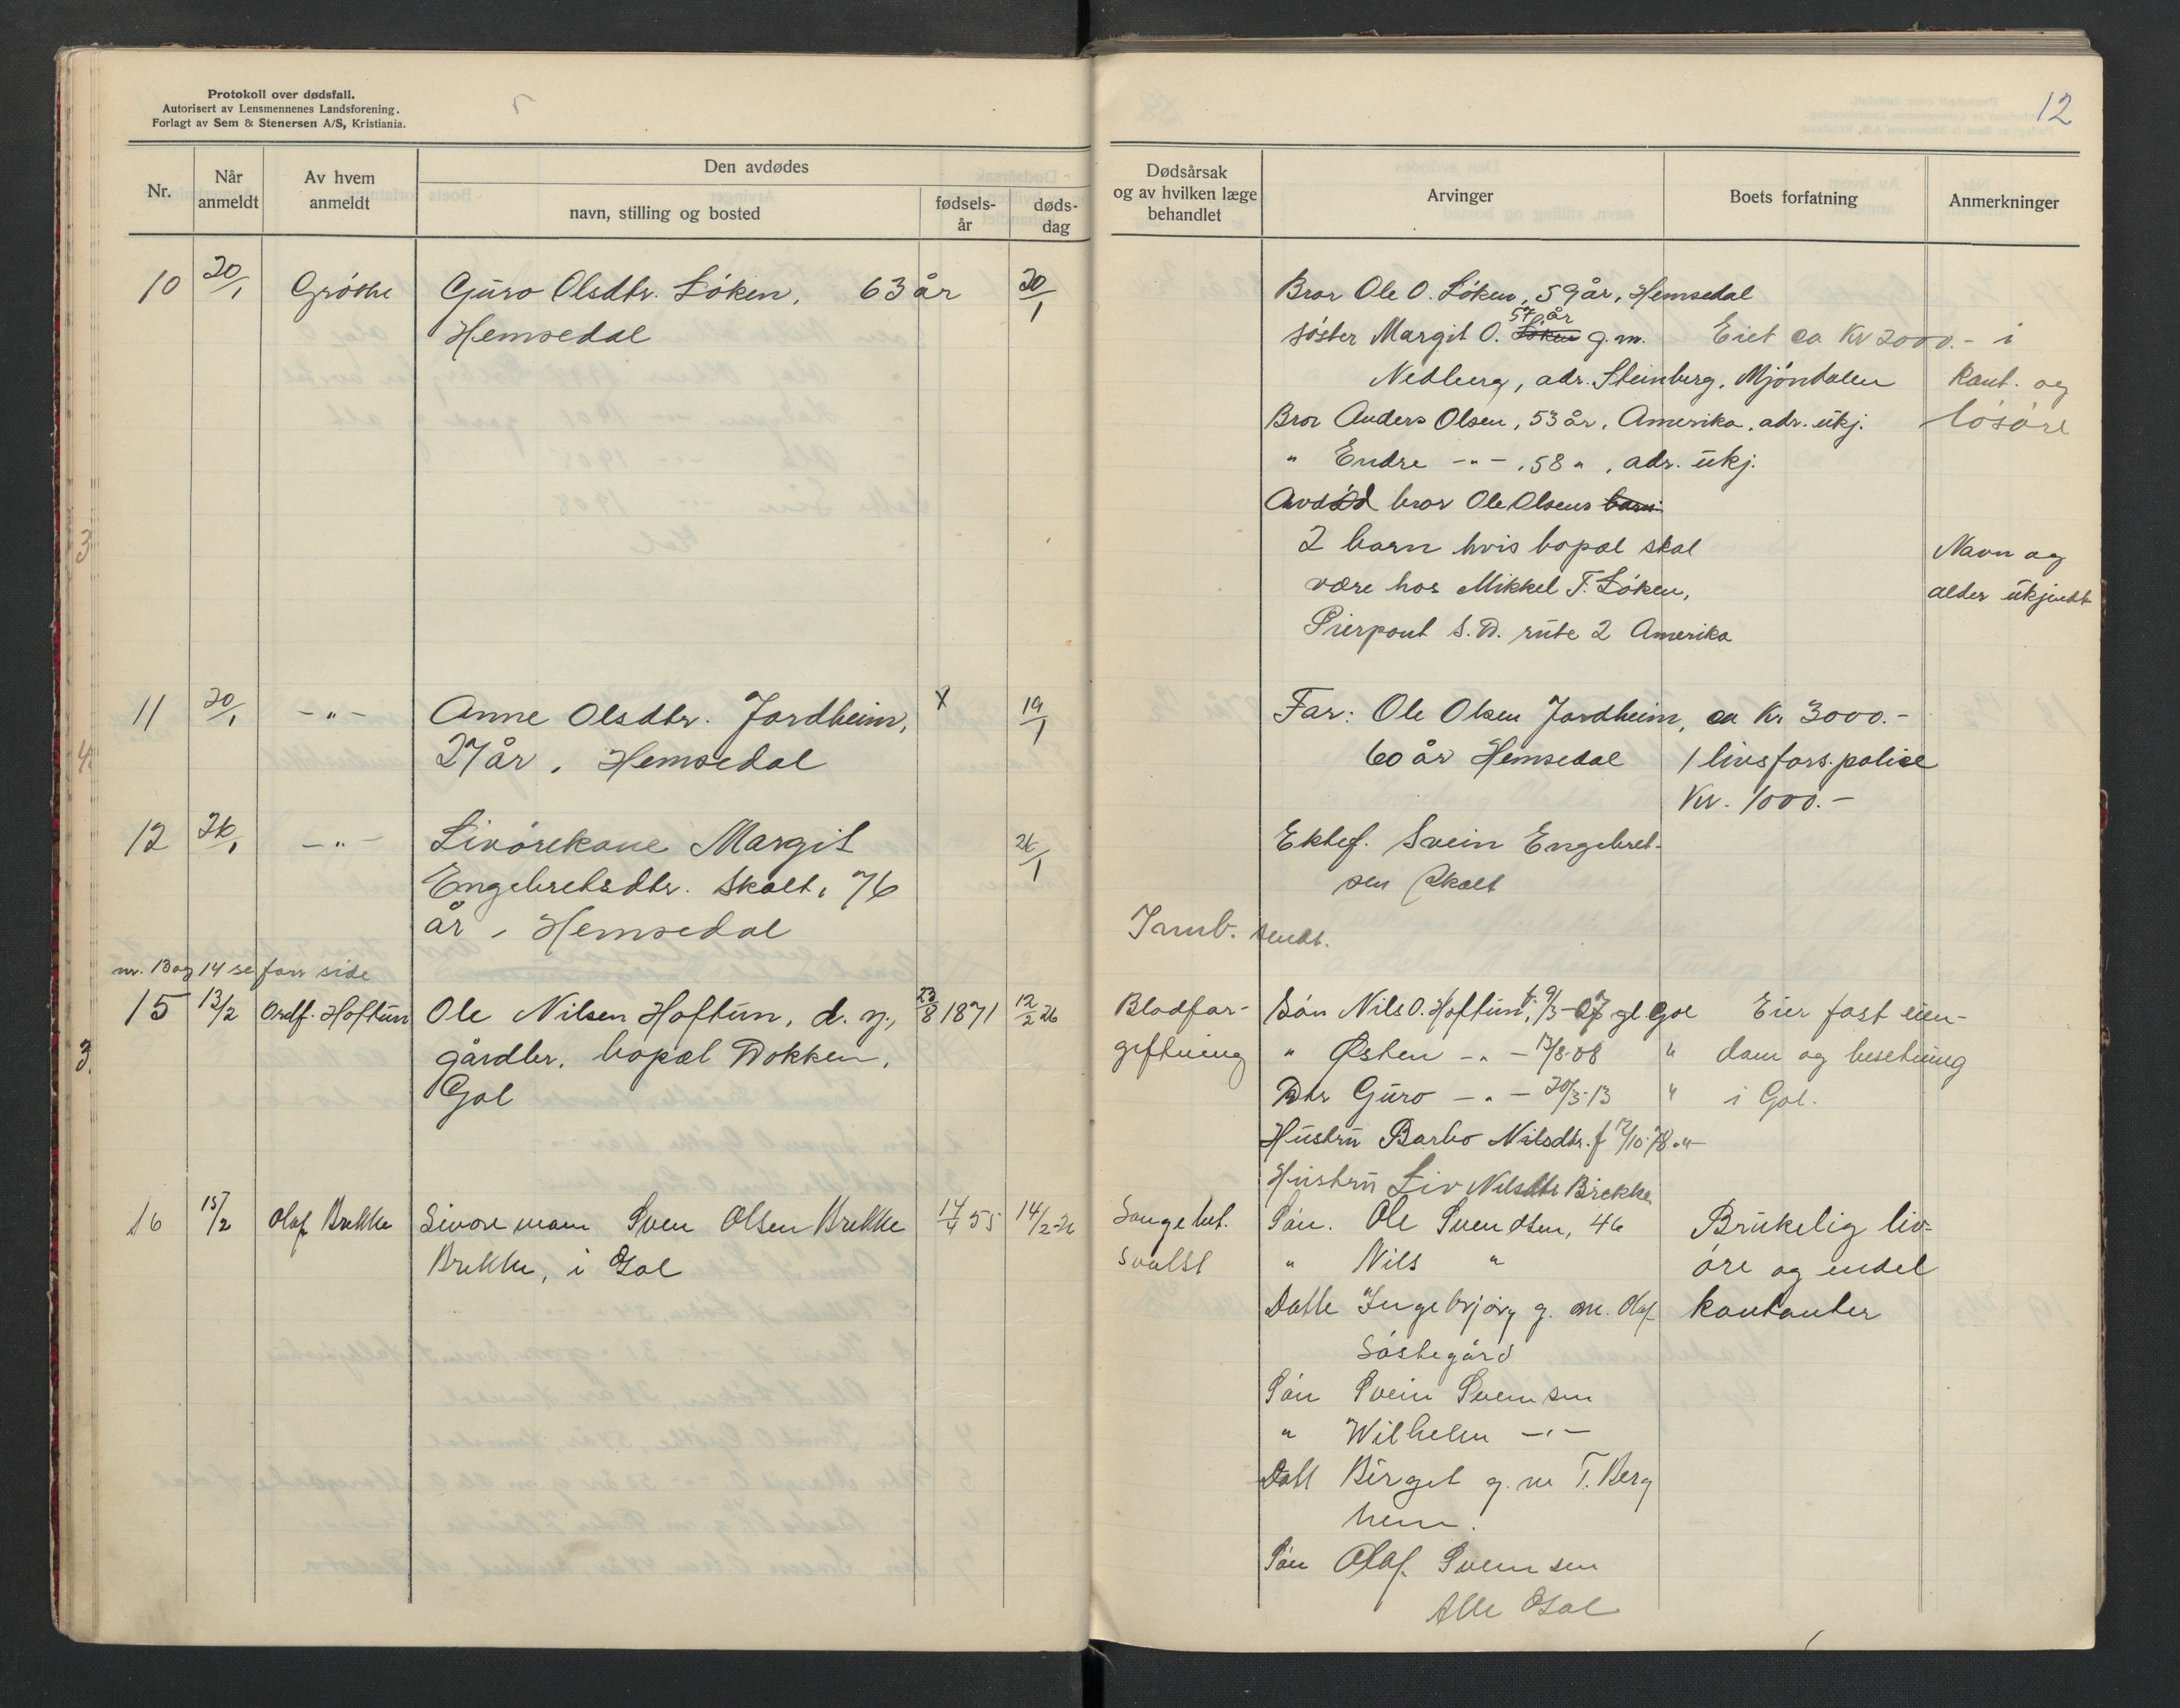 Protokoll over dødsfall.
Autorisert av Lensmennenes Landsforening.
Forlagt av Sem & Stenersen A/S, Kristiania.
12
Nr.
Når anmeldt
Av hvem anmeldt
Den avdødes
navn, stilling og bosted
fødsels-år
døds-dag
Dødsårsak og av hvilken læge behandlet
Arvinger
Boets forfatning
Anmerkninger
10 20/1 Grøthe Guro Olsdtr. Löken, 63 år 20/1
Hemsedal
Bror Ole O. Löken, 59 år, Hemsedal
57 år
söster Margit O. Löken g.m. Eiet ca Kr 2000.- i
Nedberg, adr. Steinberg, Mjöndalen kont. og
Bror Anders Olsen, 53 år, Amerika, adr. ukj. lösöre
" Endre -"-, 58 ", adr. ukj.
Avdöd bror Ole Olsens barn
2 barn hvis bopæl skal Navn og
være hos Mikkel T. Löken, alder ukjendt
Pierpont S.D. rute 2 Amerika
11 20/1 -"- Anne Olsdtr. Jordheim, x 19/1
27 år, Hemsedal
Far: Ole Olsen Jordheim, ca Kr 3000.-
60 år Hemsedal 1 livsfors. police
Kr. 1000.-
12 26/1 -"- Livörekone Margit 26/1
Engebretsdtr. Skalt, 76
år, Hemsedal
Ektef. Svein Engebret-
sen Skalt
sendt.
nr. 13 og 14 se forr side
15 13/2 Ordf. Hoftun Ole Nilsen Hoftun, d. y., 23/8 1871 12/2 26
gårdbr. bopæl Dokken,
Gol
Blodfor-
giftning
Sön Nils O. Hoftun, f. 9/3-07 gl. Gol Eier fast eien-
" Østen -"- 13/8-08 " dom og besetning
Dtr Guro -"- 20/3-13 " i Gol.
Hustru Barbo Nilsdtr. f 12/10-78 -"-
Hustru Liv Nilsdtr Brekke
16 15/2 Olaf Brekke Livöremann Sven Olsen Brekke 14/4 55 14/2-26
Brekke, i Gol
svulst
Sön. Ole Svendsen, 46 Brukelig liv-
" Nils " öre og endel
Datte Ingebrjörg g. m. Olaf kontanter
Söstegård
Sön Svein Svensen
" Wilhelm -"-
Datt Birgit g. m T. Berg
hem.
Sön Olaf Svensen
Alle Gol